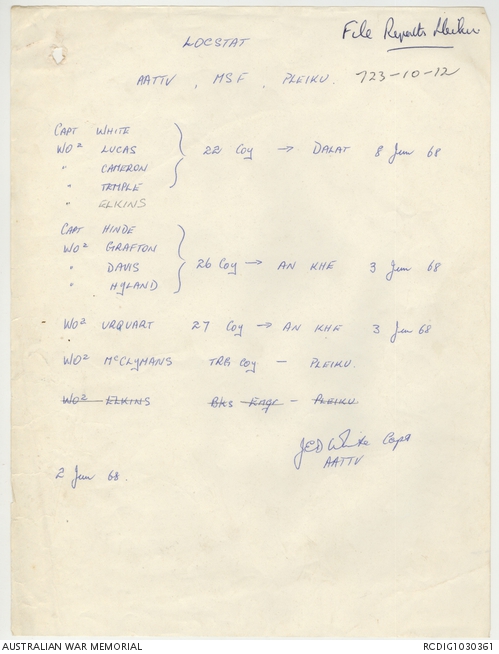 File Reports
LOCSTAT
AATTV, MSF, PLEIKU. 723-10-12
CAPT WHITE
WO² LUCAS 22 Coy → DALAT 8 Jun 68
" CAMERON
" TEMPLE
" ELKINS
CAPT HINDE
WO² GRAFTON
" DAVIS 26 Coy → AN KHE 3 Jun 68
" HYLAND
WO² URQUART 27 Coy → AN KHE 3 Jun 68
WO² McCLYMANS TRG Coy - PLEIKU.
WO² ELKINS Bks Engr - PLEIKU.
JED White Capt
AATTV
2 Jun 68.
AUSTRALIAN WAR MEMORIAL RCDIG1030361